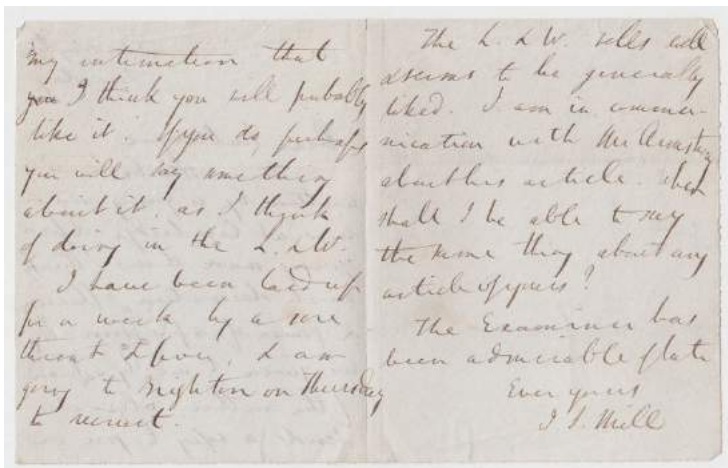 my intimation that
I think you will probably
like it. If you do, perhaps
you will say something
about it, as I think
of doing in the L. & W.
I have been laid up
for a week by a sore
throat & fever, & am
going to Brighton on Thursday
to recruit.
The L. & W. sells well
& seems to be generally
liked. I am in commu-
nication with Mr Armstrong
about his article. When
shall I be able to say
the same thing about any
article of yours?
The Examiner has
been admirable of late
Ever yours
J. S. Mill